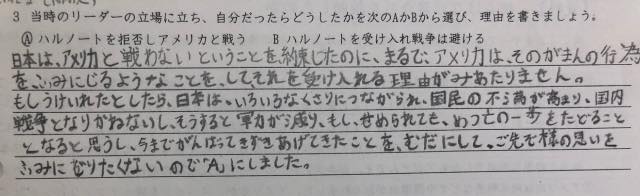 3 当時のリーダーの立場に立ち、自分だったらどうしたかを次のAかBから選び、理由を書きましょう。
Ⓐ ハルノートを拒否しアメリカと戦う B ハルノートを受け入れ戦争は避ける
日本は、アメリカと戦わないということを約束したのに、まるで、アメリカは、そのがまんの行為
をふみにじるようなことを、してそれを受け入れる理由がみあたりません。
もしうけいれたとしたら、日本は、いろいろなくさりにつながられ、国民の不満が高まり、国内
戦争となりかねないし、そうすると軍力が減り、もし、せめられても、めつ亡の一歩をたどること
となると思うし、今までがんばってきずきあげてきたことを、むだにして、ご先ぞ様の思いを
ふみに じりたくない ので「A」にしました。